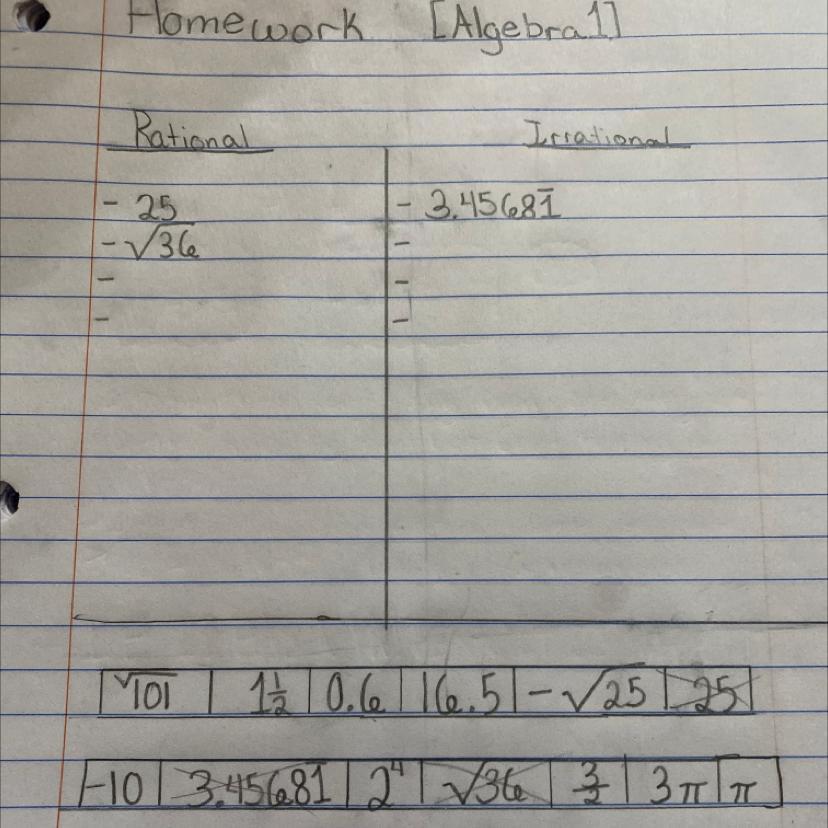 Homework [Algebra 1]
Rational Irrational
- 25 - 3.45681̅
- √36 -
- -
- -
√101 | 1½ | 0.6 | 16.5 | -√25 | 25
-10 | 3.45681 | 2⁴ | √36 | 3/2 | 3π | π